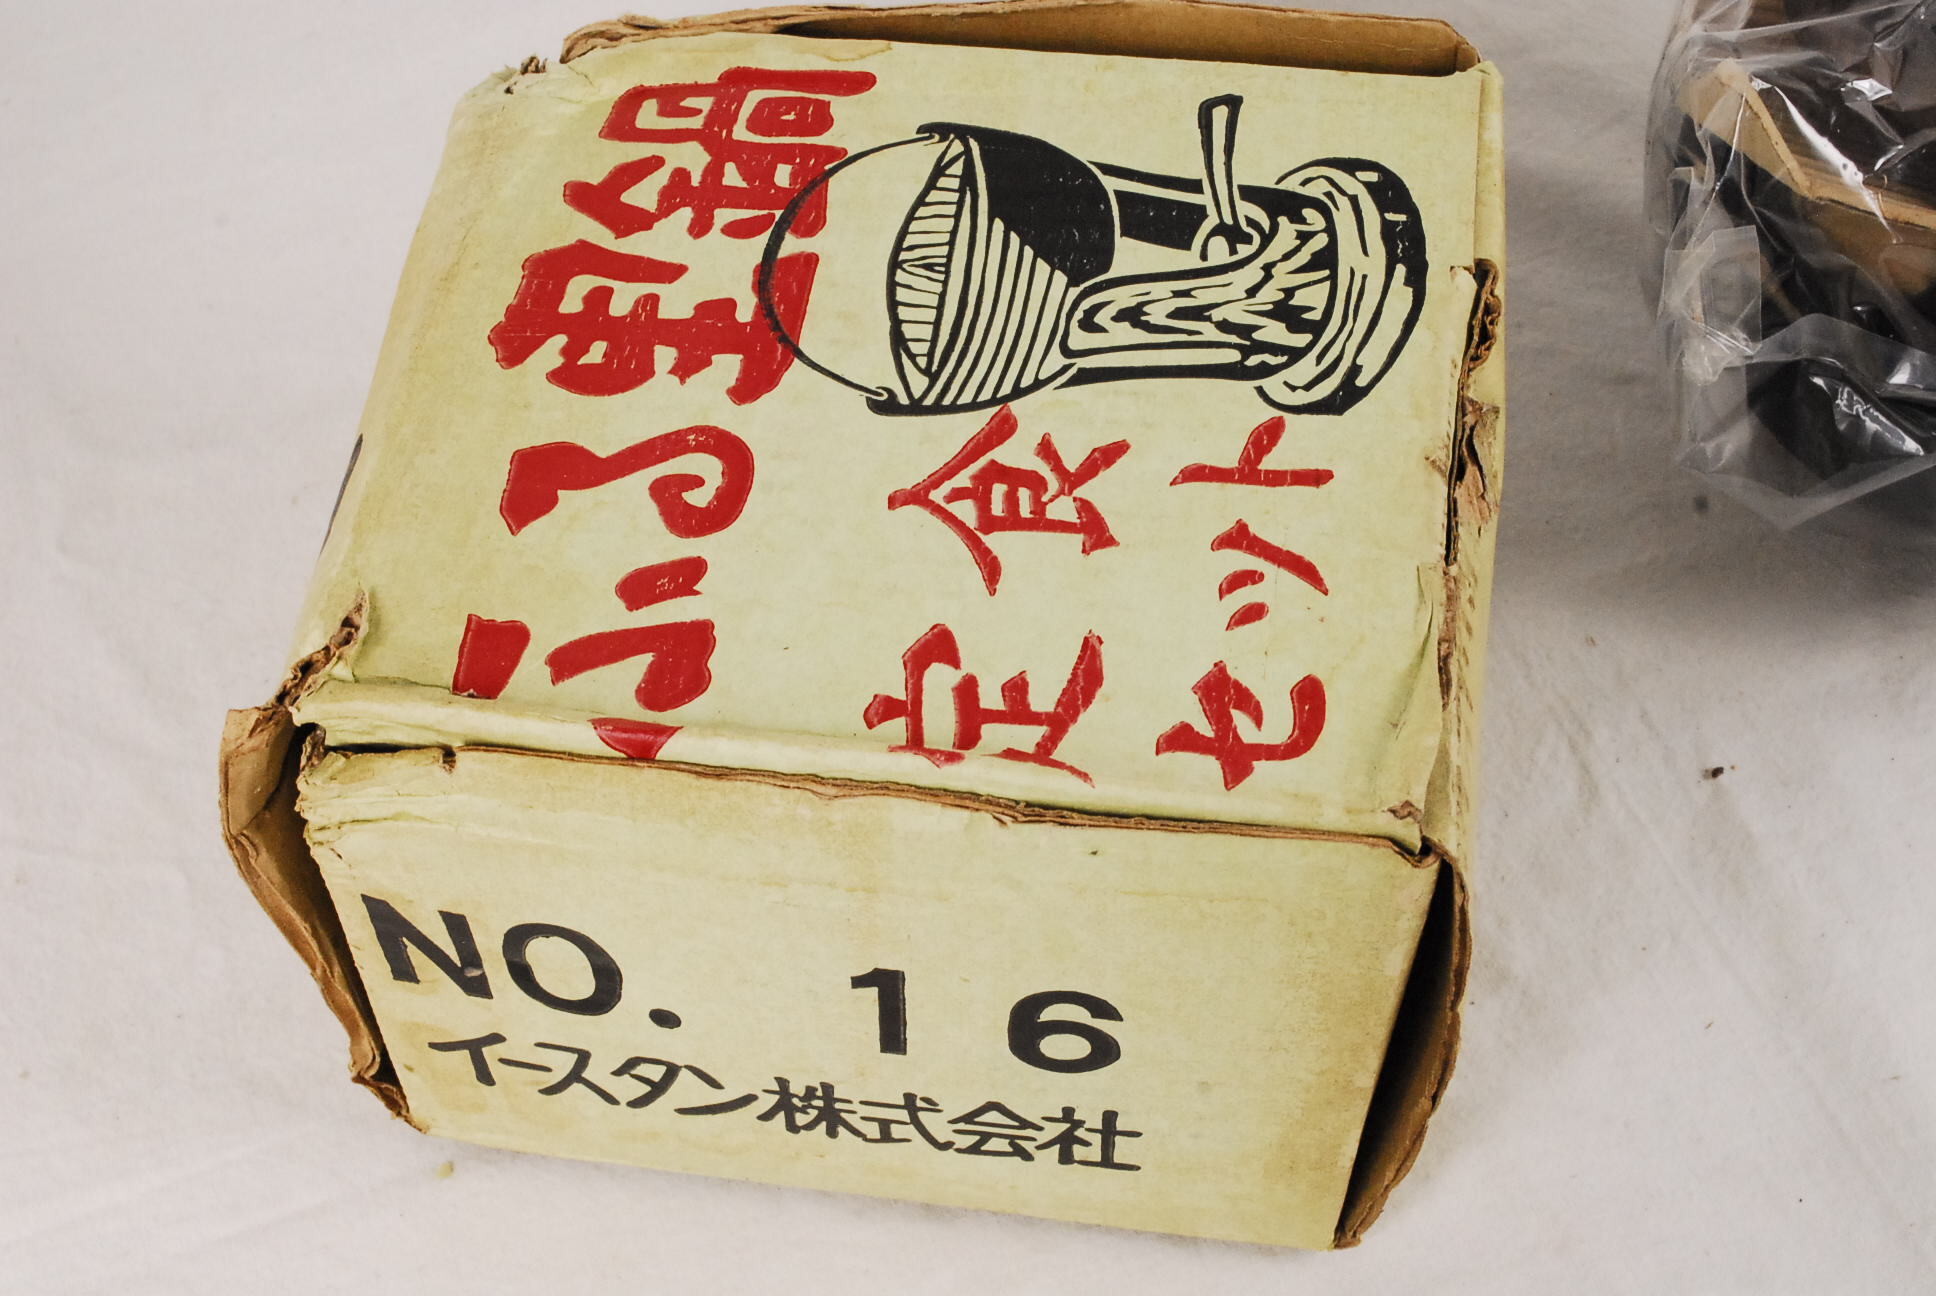 ふる里鍋
定食
セット
NO. 16
イースタン株式会社